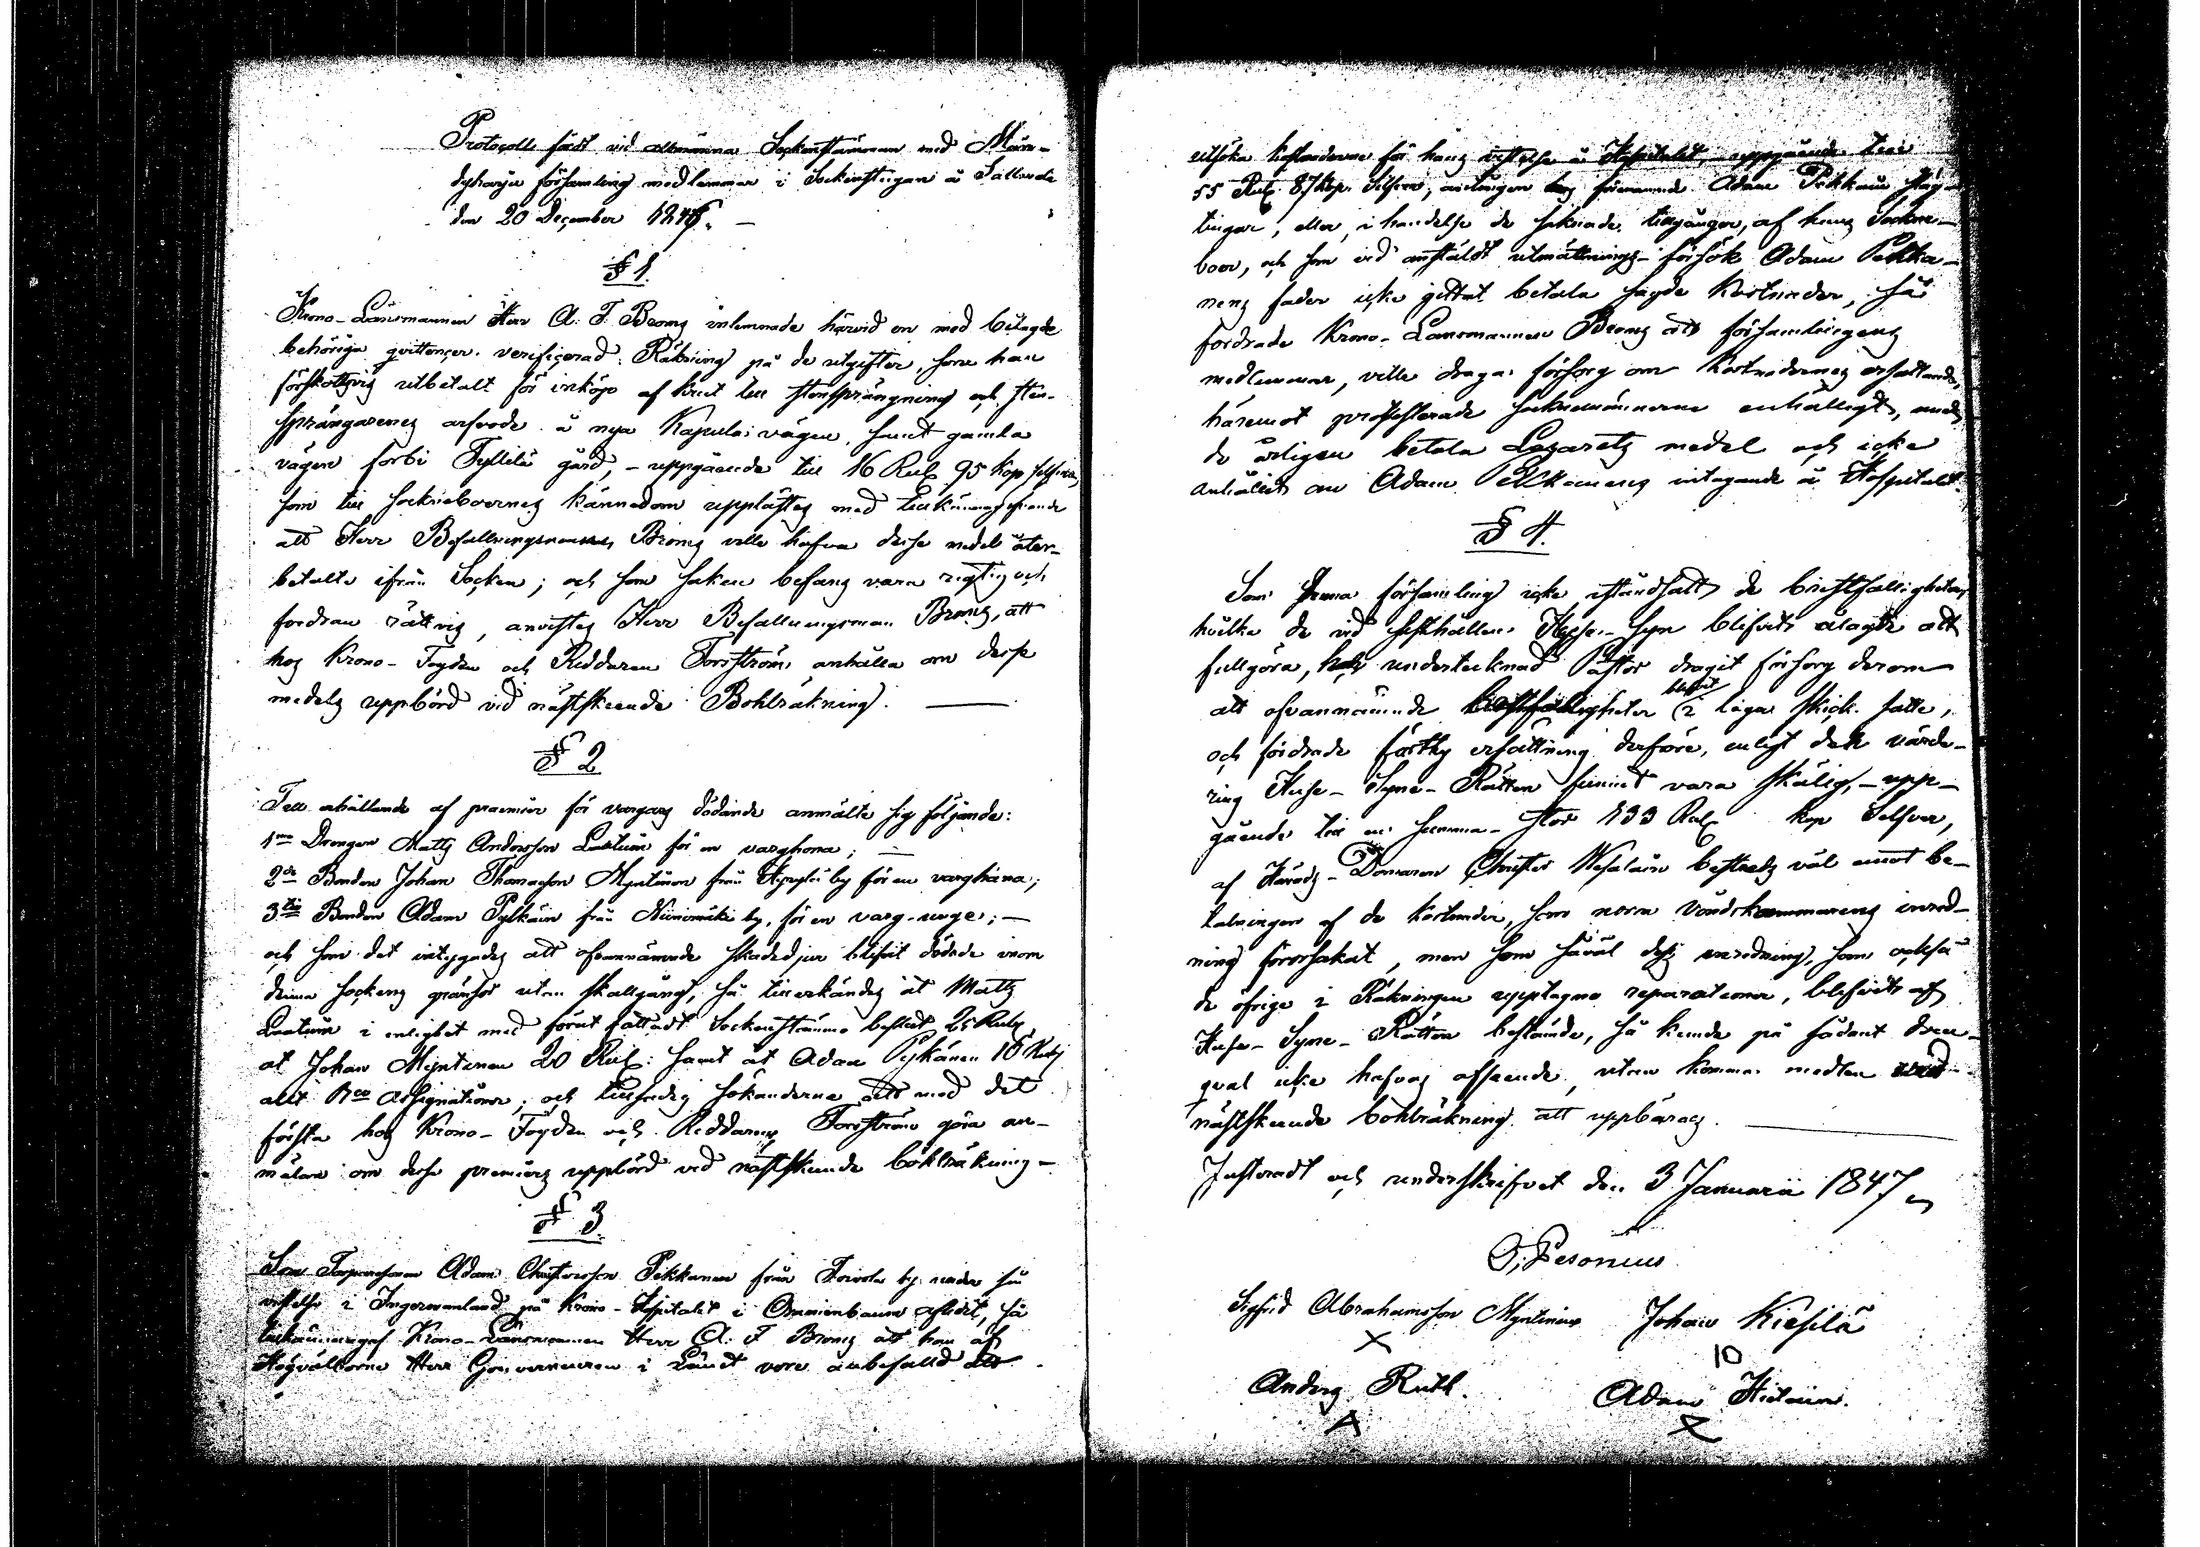 Protocoll fördt vid allmänna Sockenstämman med Mäntyharju församlings medlemmar i Sockenstugan å Sallela
den 20 December 1846. —
§ 1.
Krono-Länsmannen Herr A. F. Broms inlemnade härvid en med bilagde
behöriga qvittencer verificerad Räkning på de utgifter, som han
förskottsvis utbetalt för inköp af krut till stensprängning och sten-
sprängarenes arfvode å nya Kapula vägen, samt gamla
vägen förbi Tyllilä gård, – uppgående till 16 Rub. 95 kop silfver,
som till Sockneboernes kännedom upplästes med tillkännagifvande
att Herr Befallningsman Broms ville hafva desse medel åter-
betalte ifrån Socken; och som saken befans vara rigtig och
fordran rättvis, anvistes Herr Befallningsman Broms, att
hos Krono-Fogden och Riddaren Forsström anhålla om desse
medels uppbörd vid nästskeende Bohlräkning. —
§ 2
Till erhållande af præmier för vargars dödande anmälte sig följande:
1mo Drengen Matts Andersson for en varghona; —
2do Bonden Johan Thomasson Myntinen från by för en varghona;
3tio Bonden Adam Pylkäin från Niinimäki by, för en varg-unge; —
och som det intygades att ofvannämnde skadedjur blifvit dödade inom
denna Sockens gränsor utan skallgång, så tillerkändes åt Matts
i enlighet med förut fattadt Sockenstämmo beslut 25 Rub,
åt Johan Myntinen 20 Rub: samt åt Adam Pylkänen 10 Rub
allt Bco Assignationer; och sökanderne att med det
första hos Krono-Fogden och Riddaren Forsström göra an-
mälan om desse premiers uppbörd vid nästskeende bohlräkning –
§ 3.
Som Adam Christersson Pekkanen från Toivola by under sin
vistelse i Ingermanland på Krono-Hospitalet i Oranienbaum aflidit, så
tillkännagaf Krono-Länsmannen Herr A. F. Broms att han af
Högvälborne Herr Gouverneuren i Länet vore anbefalld att
utsöka kostnaderne för hans vistelse å Hospitalet, uppgående till
55 Rub. 87 kop. Silfver, antingen hos förenämnde Adam Pekkains
tingar, eller, i händelse de saknade tillgångar, af hans Sockne-
boer, och som vid anstäldt utmätnings-försök Adam Pekka-
nens fader icke gittat betala sagde kostnader, så
fordrade Krono-Länsmannen Broms att församlingens
medlemmar, ville draga försorg om kostnadernes ersättande,
häremot protesterade Socknemännerne enhälligt, emedan
de årligen betala Lazaretts medel och icke
anhållit om Adam Pekkanens intagande å Hospitalet.
§ 4.
Som denna församling icke iståndsatt de bristfälligheter,
hvilka de vid sisthållen Huse-Syn blifvit ålagde att
fullgöra, har undertecknad Pastor dragit försorg derom
att ofvannämnde bristfälligheter blifvit i laga skick satte,
och fördrade förthy ersättning derföre, enligt den värde-
ring Huse-Syne-Rätten funnit vara skälig, – upp-
gående till en summa stor 133 Rub kop Silfver,
af Härads-Domaren Christer Wesalain bestreds väl emot be-
talningen af de kostnader, som norra vindskammarens inred-
ning förorsakat, men som såväl dess inredning, som också
de öfrige i Räkningen upptagne reparationer, blifvit af
Huse-Syne-Rätten bestämde, så kunde på sådant dröjs-
qval icke hafvas afseende, utan komma medlen vid
nästskeende bohlräkning att uppbäras. —
Justeradt och underskrifvet den 3 Januarii 1847
G. Pesonius
Sigfrid Abrahamsson Myntinen Johan Kiesilä
X 10
Anders Ruth. Adam Hietain.
A Z